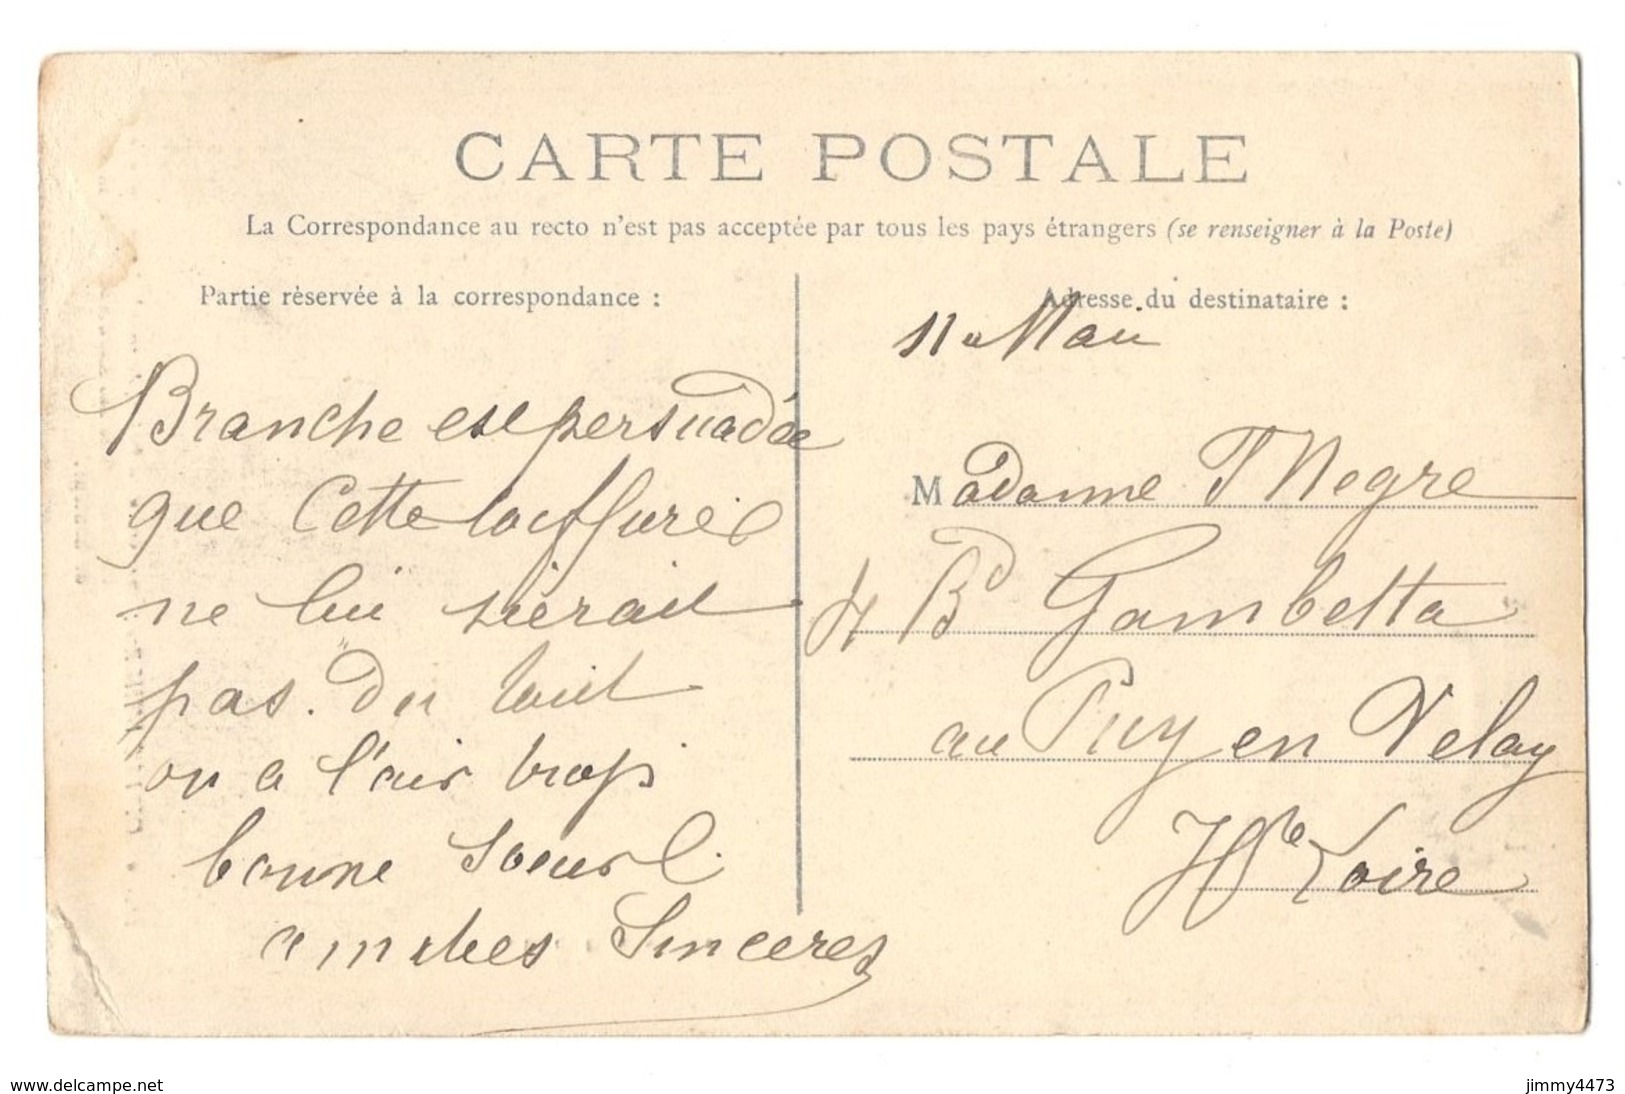 CARTE POSTALE
La Correspondance au recto n'est pas acceptée par tous les pays étrangers (se renseigner à la Poste)
Partie réservée à la correspondance :
Adresse du destinataire :
11 Mai
Branche est persuadée
que cette coiffure
ne lui sierait
pas du tout
on a l'air trop
bonne soeur
amitiés Sinceres
Madame Negre
4 Bd Gambetta
au Puy en Velay
Hte Loire
www.delcampe.net
jimmy4473